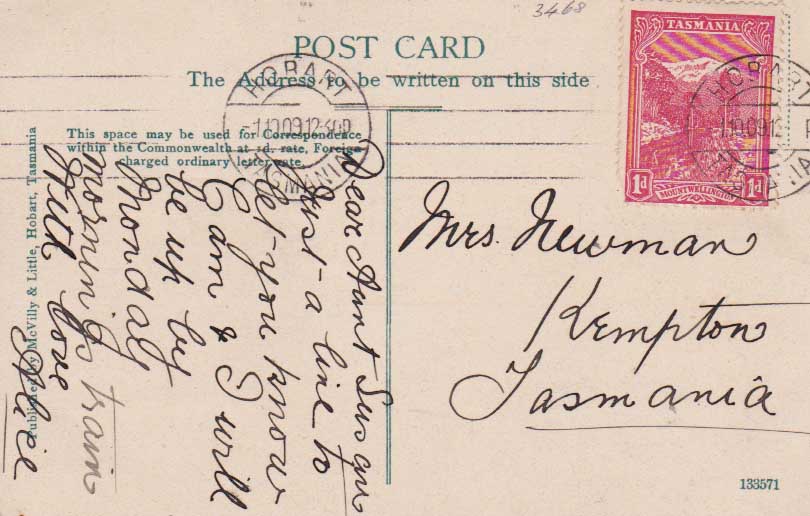 3468
POST CARD
The Address to be written on this side
This space may be used for Correspondence
within the Commonwealth at ½d. rate, Foreign
charged ordinary letter rate.
HOBART
1.10.09.12
TASMANIA
TASMANIA
1d
MOUNT WELLINGTON
1d
HOBART
1.10.09.12
Published by McVilly & Little, Hobart, Tasmania
Dear Aunt Susan
Just a line to
let you know
E am & I will
be up by
Monday
mornings train
With love
Alice
Mrs. Newman
Kempton
Tasmania
133571